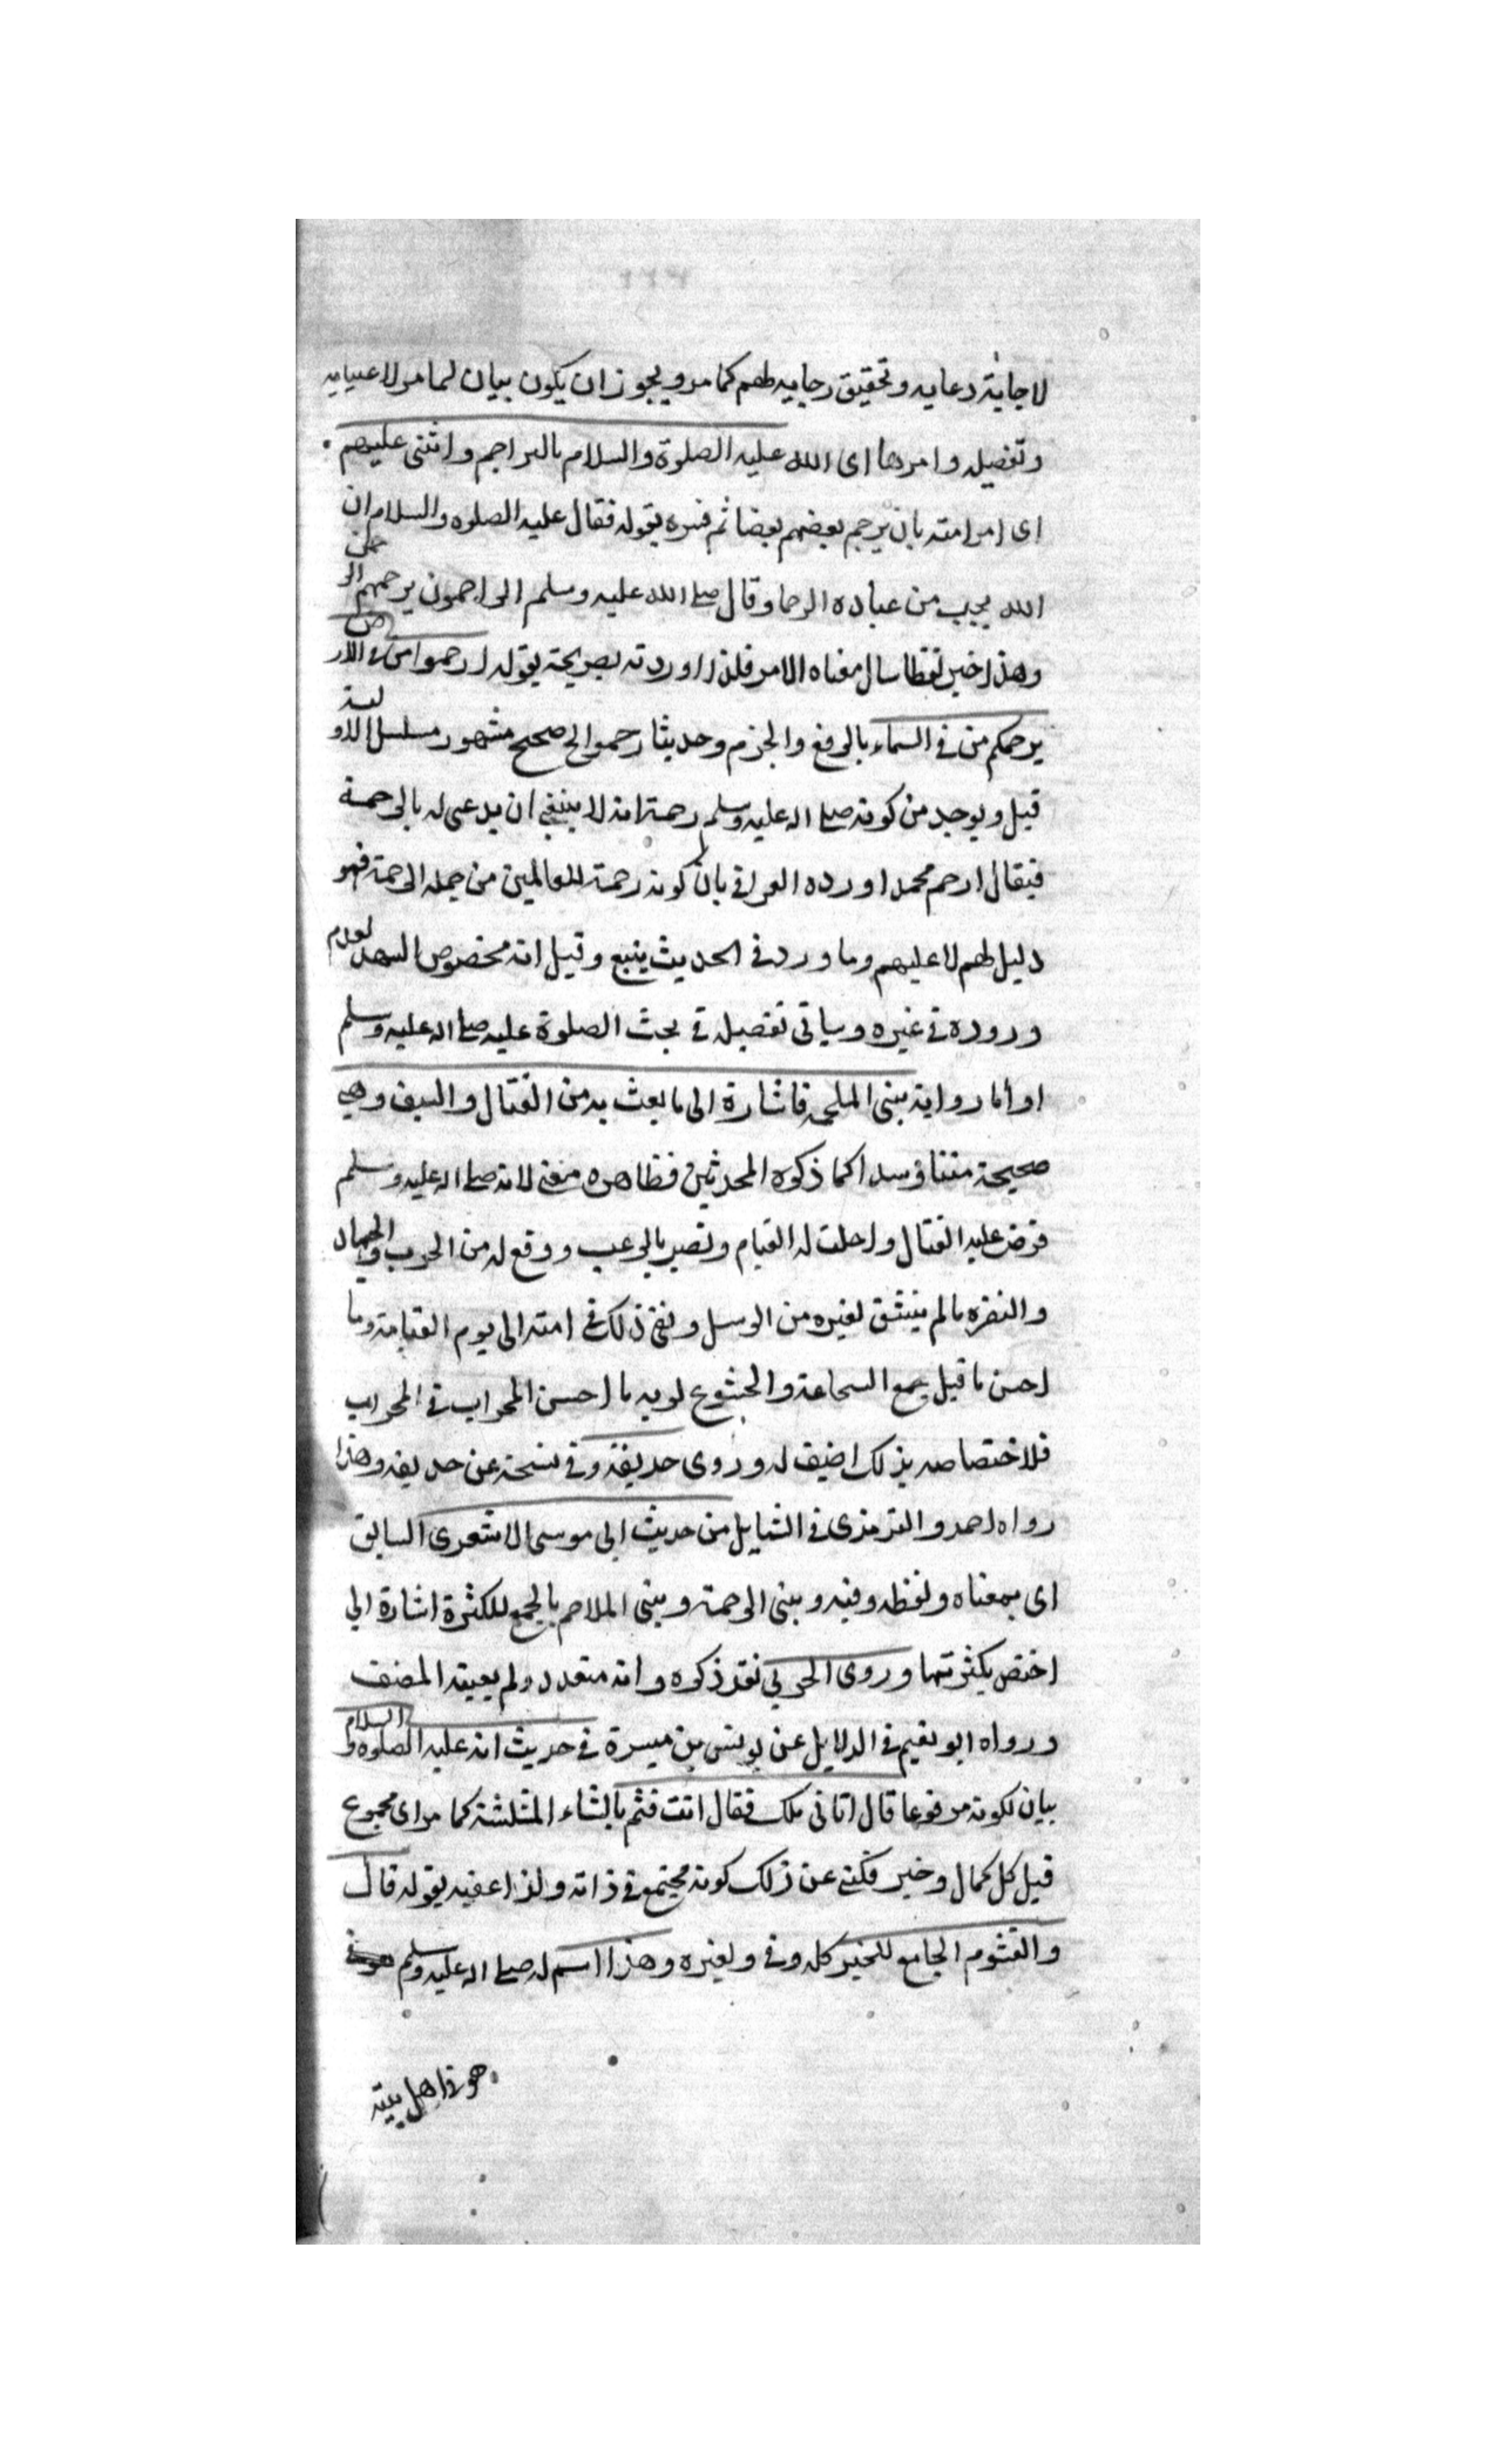 لاجابة دعايه وتحقيق رجايه لهم كما مر ويجوز ان يكون بيان لما مر لا عينيه
وتفصيله وامرها اى الله عليه الصلوة والسلام بالتراحم واثنى عليهم
اى امر امته بان يرحم بعضهم بعضا ثم فسره بقوله فقال عليه الصلوه والسلام ان
الله يحب من عباده الرحما وقال صلى الله عليه وسلم الراحمون يرحمهم الرحمن
وهذا خبر لفظا سال معناه الامر فلذا اوردته بصريحة بقوله ارحموا من فى الارض
يرحمكم من فى السماء بالرفع والجزم وحديث ارحموا الخ صحيح مشهور مسلسل الاولية
قيل ويوجد من كونه صلى الله عليه وسلم رحمة انه لا ينبغى ان يدعى له بالرحمة
فيقال ارحم محمد اورده العراقى بان كونه رحمة للعالمين من جمله الرحمة فهو
دليل لهم لا عليهم وما ورد فى الحديث يتبع وقيل انه مخصوص لعدم
وروده فى غيره وسياتى تفصيله فى بحث الصلوة عليه صلى الله عليه وسلم
او أما رواية نبى الملحمه فاشارة الى ما بعث به من القتال والسيف وهى
صحيحة متنا وسدا كما ذكره المحدثين فظاهره معنى لانه صلى الله عليه وسلم
فرض عليه القتال واحلت له الغيام ونصر بالرعب ووقع له من الحرب والجهاد
والنصره مالم يتفق لغيره من الرسل ونفى ذلك فى امته الى يوم القيامة وما
احسن ما قيل جمع السماعة والخشوع لربه ما احسن المحراب فى المحراب
فلاختصاصه بذلك اضيف له وروى حديفة وفى نسخة عن حديفه وهذا
رواه احمد والترمذى فى الشمايل من حديث ابى موسى الاشعرى السابق
اى بمعناه ولفظه وفيه ونبى الرحمة ونبى الملاحم بالجمع للكثرة اشارة الى
اختص بكثرتها وروى الحربى تقد ذكره وانه متعدد ولم يعينه المصنف
ورواه ابو نعيم فى الدلايل عن يونس بن ميسرة فى حديث انه عليه الصلوه والسلام
بيان لكونه مرفوعا قال اتانى ملك فقال انت قثم بالثاء المثلثة كما مر اى مجموع
قيل كل كمال وخير فكنى عن ذلك كونه مجتمع فى ذاته ولذا عقبه بقوله قال
والقثوم الجامع للخير كله وفى ولغيره وهذا اسم له صلى الله عليه وسلم
هو فى اهل بيته